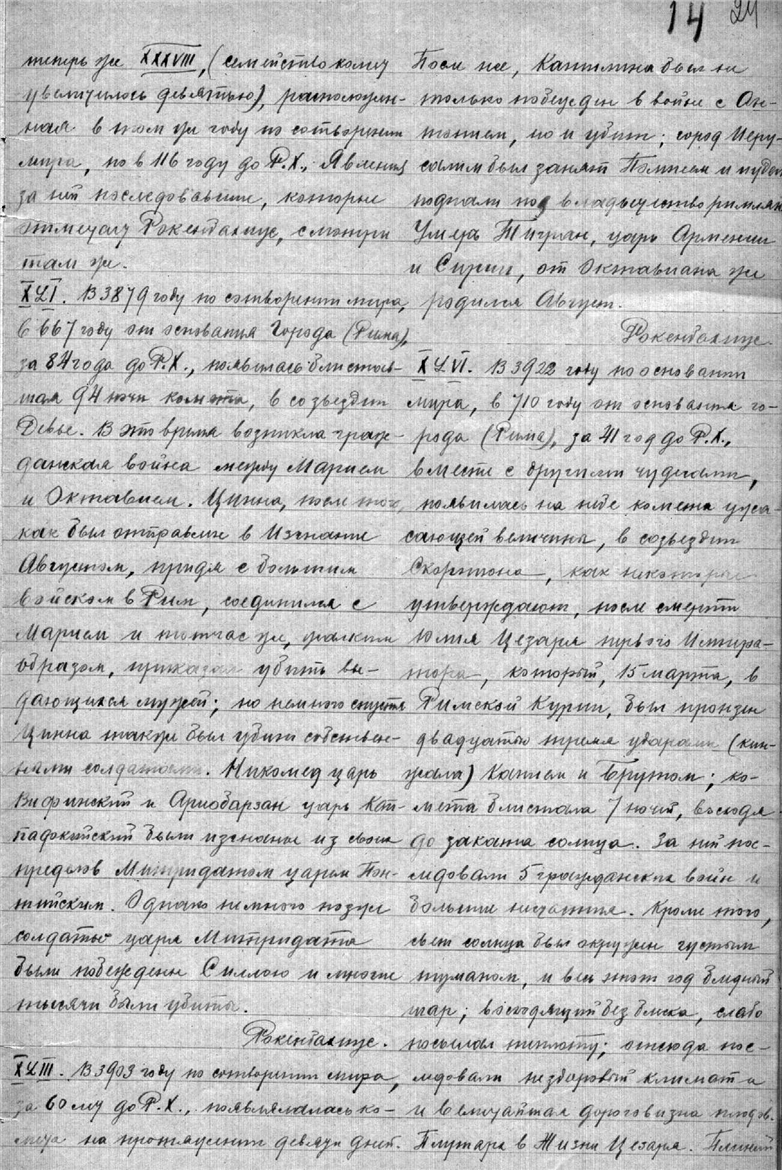 14 24
теперь же XXXVIII, (семейство комет
увеличилось девятью),
в том же году по сотворении
мира, но в 116 году до Р.Х., Явления
за ней последовавшие, которые
отмечает Рокенбахиус, смотри
там же.
XLI. В 3879 году по сотворении мира,
в 667 году от основания Города (Рима),
за 84 года до Р.Х., появилась блистав-
шая 94 ночи комета, в созвездии
Девы. В это время возникла граж-
данская война между Марием
и Октавием. Цинна, после того,
как был отправлен в Изгнание
Августом, придя с большим
войском в Рим, соединился с
Марием и тотчас же, жалким
образом, приказал убить вы-
дающихся мужей; но немного спустя
Цинна также был убит собствен-
ными солдатами. Никомед царь
Вифинский и Ариобарзан царь Кап-
падокийский были изгнаны из своих
пределов Митридатом царем Пон-
тийским. Однако немного позже
солдаты царя Митридата
были побеждены Силлою и многие
тысячи были убиты.
Рокенбахиус.
XLIII. В 3903 году по сотворении мира,
за 60 лет до Р.Х., появлялась ко-
мета на протяжении девяти дней.
После нее, Катилина был не
только побежден в войне с Ан-
тонием, но и убит; город Иеру-
салим был занят Помпеем и иудеи
подпали под владычество римлян
Умер Тигран, царь Армении
и Сирии, от Октавиана же
родился Август.
Рокенбахиус
XLVI. В 3922 году по основании
мира, в 710 году от основания го-
рода (Рима), за 41 год до Р.Х.,
вместе с другими чудесами,
появилась на небе комета ужа-
сающей величины, в созвездии
Скорпиона, как некоторые
утверждают, после смерти
Юлия Цезаря первого Импера-
тора, который, 15 марта, в
Римской Курии, был пронзен
двадцатью тремя ударами (кин-
жала) Кассием и Брутом; ко-
мета блистала 7 ночей, восходя
до заката солнца. За ней пос-
ледовали 5 гражданских войн и
большие несчастия. Кроме того,
свет солнца был окружен густым
туманом, и весь этот год бледный
шар; восходящий без блеска, слабо
посылал теплоту; отсюда пос-
ледовали нездоровый климат а
и величайшая дороговизна плодов.
Плутарх в Жизни Цезаря. Плиний